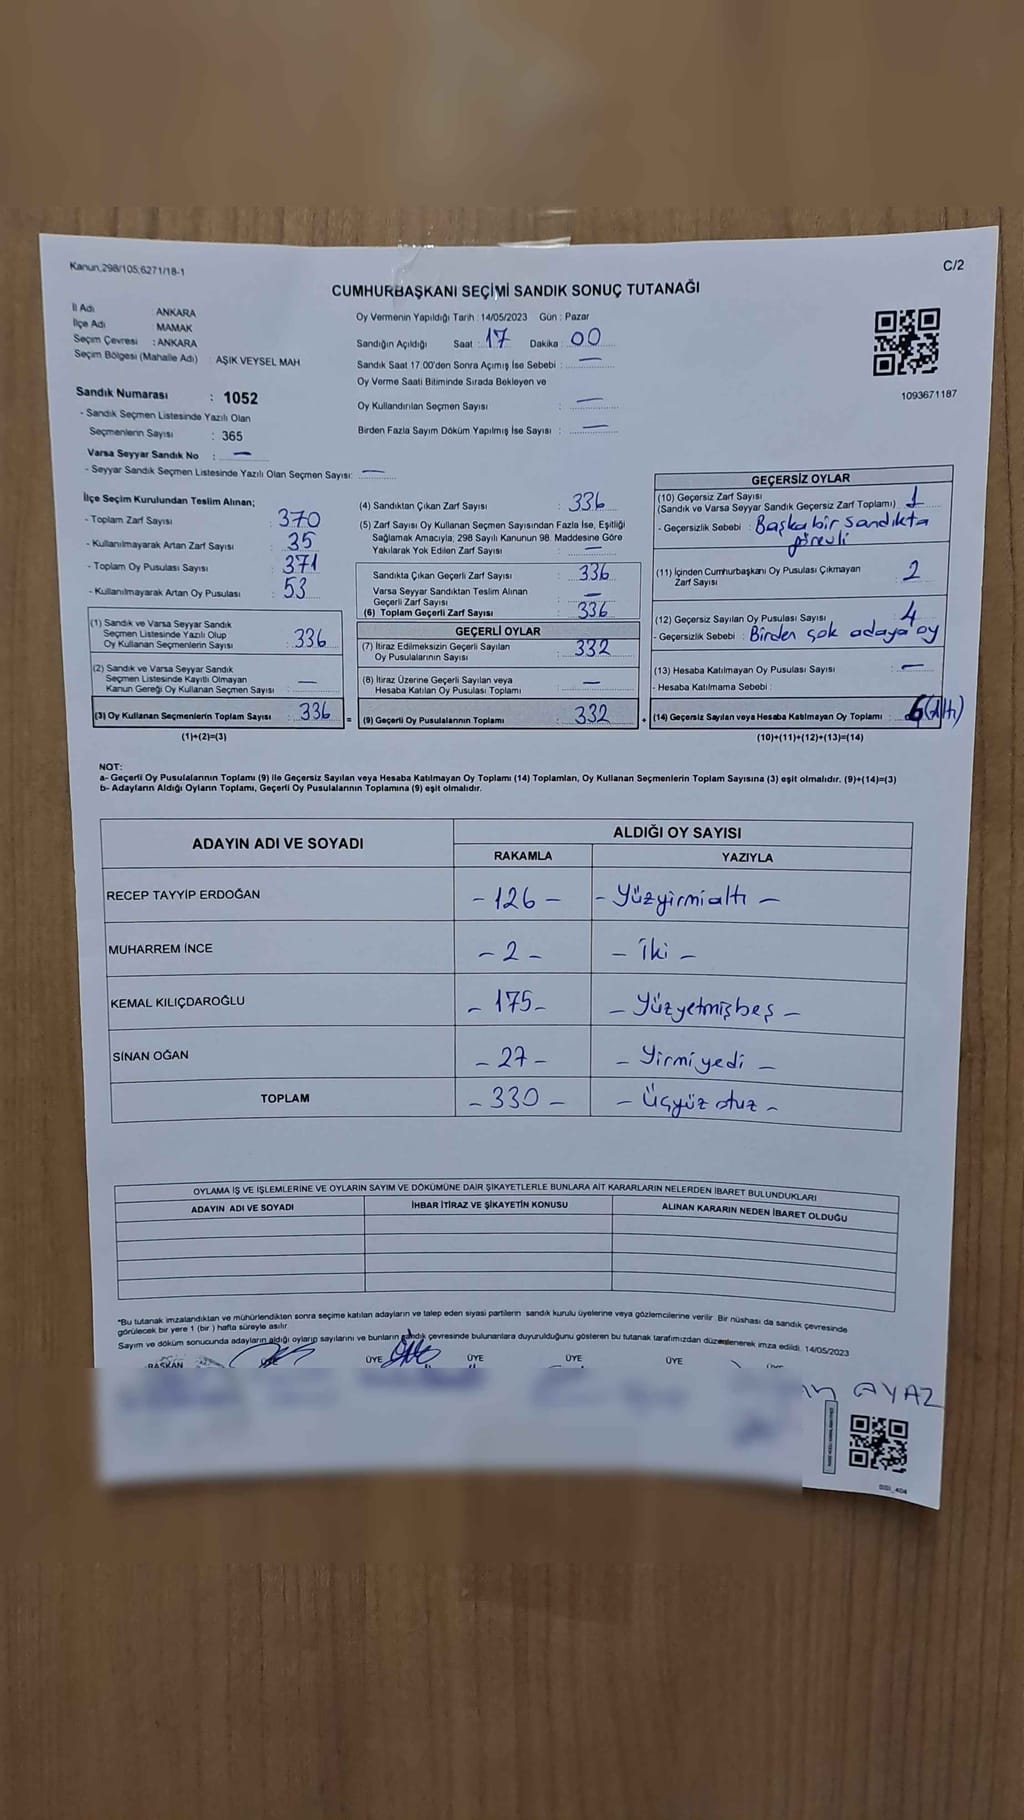 Kanun,298/105;6271/18-1
C/2
CUMHURBAŞKANI SEÇİMİ SANDIK SONUÇ TUTANAĞI
İl Adı ANKARA
İlçe Adı MAMAK
Seçim Çevresi : ANKARA
Seçim Bölgesi (Mahalle Adı) AŞIK VEYSEL MAH
Sandık Numarası : 1052
- Sandık Seçmen Listesinde Yazılı Olan
Seçmenlerin Sayısı : 365
Varsa Seyyar Sandık No : —
- Seyyar Sandık Seçmen Listesinde Yazılı Olan Seçmen Sayısı: —
Oy Vermenin Yapıldığı Tarih : 14/05/2023 Gün : Pazar
Sandığın Açıldığı Saat : 17 Dakika : 00
Sandık Saat 17.00'den Sonra Açımış İse Sebebi : —
Oy Verme Saati Bitiminde Sırada Bekleyen ve
Oy Kullandırılan Seçmen Sayısı : —
Birden Fazla Sayım Döküm Yapılmış İse Sayısı : —
1093671187
İlçe Seçim Kurulundan Teslim Alınan;
- Toplam Zarf Sayısı : 370
- Kullanılmayarak Artan Zarf Sayısı : 35
- Toplam Oy Pusulası Sayısı : 371
- Kullanılmayarak Artan Oy Pusulası : 53
(1) Sandık ve Varsa Seyyar Sandık
Seçmen Listesinde Yazılı Olup
Oy Kullanan Seçmenlerin Sayısı : 336
(2) Sandık ve Varsa Seyyar Sandık
Seçmen Listesinde Kayıtlı Olmayan
Kanun Gereği Oy Kullanan Seçmen Sayısı : —
(3) Oy Kullanan Seçmenlerin Toplam Sayısı : 336 =
(1)+(2)=(3)
(4) Sandıktan Çıkan Zarf Sayısı : 336
(5) Zarf Sayısı Oy Kullanan Seçmen Sayısından Fazla İse, Eşitliği
Sağlamak Amacıyla, 298 Sayılı Kanunun 98. Maddesine Göre
Yakılarak Yok Edilen Zarf Sayısı : —
Sandıkta Çıkan Geçerli Zarf Sayısı : 336
Varsa Seyyar Sandıktan Teslim Alınan
Geçerli Zarf Sayısı : —
(6) Toplam Geçerli Zarf Sayısı : 336
GEÇERLİ OYLAR
(7) İtiraz Edilmeksizin Geçerli Sayılan
Oy Pusulalarının Sayısı : 332
(8) İtiraz Üzerine Geçerli Sayılan veya
Hesaba Katılan Oy Pusulası Toplamı : —
(9) Geçerli Oy Pusulalarının Toplamı : 332 +
GEÇERSİZ OYLAR
(10) Geçersiz Zarf Sayısı
(Sandık ve Varsa Seyyar Sandık Geçersiz Zarf Toplamı) : 1
- Geçersizlik Sebebi : Başka bir sandıkta
görevli
(11) İçinden Cumhurbaşkanı Oy Pusulası Çıkmayan
Zarf Sayısı : 2
(12) Geçersiz Sayılan Oy Pusulası Sayısı : 4
- Geçersizlik Sebebi : Birden çok adaya oy
(13) Hesaba Katılmayan Oy Pusulası Sayısı : —
- Hesaba Katılmama Sebebi :
(14) Geçersiz Sayılan veya Hesaba Katılmayan Oy Toplamı : 6 (Altı)
(10)+(11)+(12)+(13)=(14)
NOT:
a- Geçerli Oy Pusulalarının Toplamı (9) ile Geçersiz Sayılan veya Hesaba Katılmayan Oy Toplamı (14) Toplamları, Oy Kullanan Seçmenlerin Toplam Sayısına (3) eşit olmalıdır. (9)+(14)=(3)
b- Adayların Aldığı Oyların Toplamı, Geçerli Oy Pusulalarının Toplamına (9) eşit olmalıdır.
ADAYIN ADI VE SOYADI ALDIĞI OY SAYISI
RAKAMLA YAZIYLA
RECEP TAYYİP ERDOĞAN - 126 - - Yüzyirmialtı -
MUHARREM İNCE - 2 - - İki -
KEMAL KILIÇDAROĞLU - 175 - - Yüzyetmişbeş -
SİNAN OĞAN - 27 - - Yirmiyedi -
TOPLAM - 330 - - Üçyüz otuz -
OYLAMA İŞ VE İŞLEMLERİNE VE OYLARIN SAYIM VE DÖKÜMÜNE DAİR ŞİKAYETLERLE BUNLARA AİT KARARLARIN NELERDEN İBARET BULUNDUKLARI
ADAYIN ADI VE SOYADI İHBAR İTİRAZ VE ŞİKAYETİN KONUSU ALINAN KARARIN NEDEN İBARET OLDUĞU
*Bu tutanak imzalandıktan ve mühürlendikten sonra seçime katılan adayların ve talep eden siyasi partilerin sandık kurulu üyelerine veya gözlemcilerine verilir. Bir nüshası da sandık çevresinde
görülecek bir yere 1 (bir ) hafta süreyle asılır.
Sayım ve döküm sonucunda adayların aldığı oyların sayılarını ve bunların sandık çevresinde bulunanlara duyurulduğunu gösteren bu tutanak tarafımızdan düzenlenerek imza edildi. 14/05/2023
BAŞKAN ÜYE ÜYE ÜYE ÜYE ÜYE
AYAZ